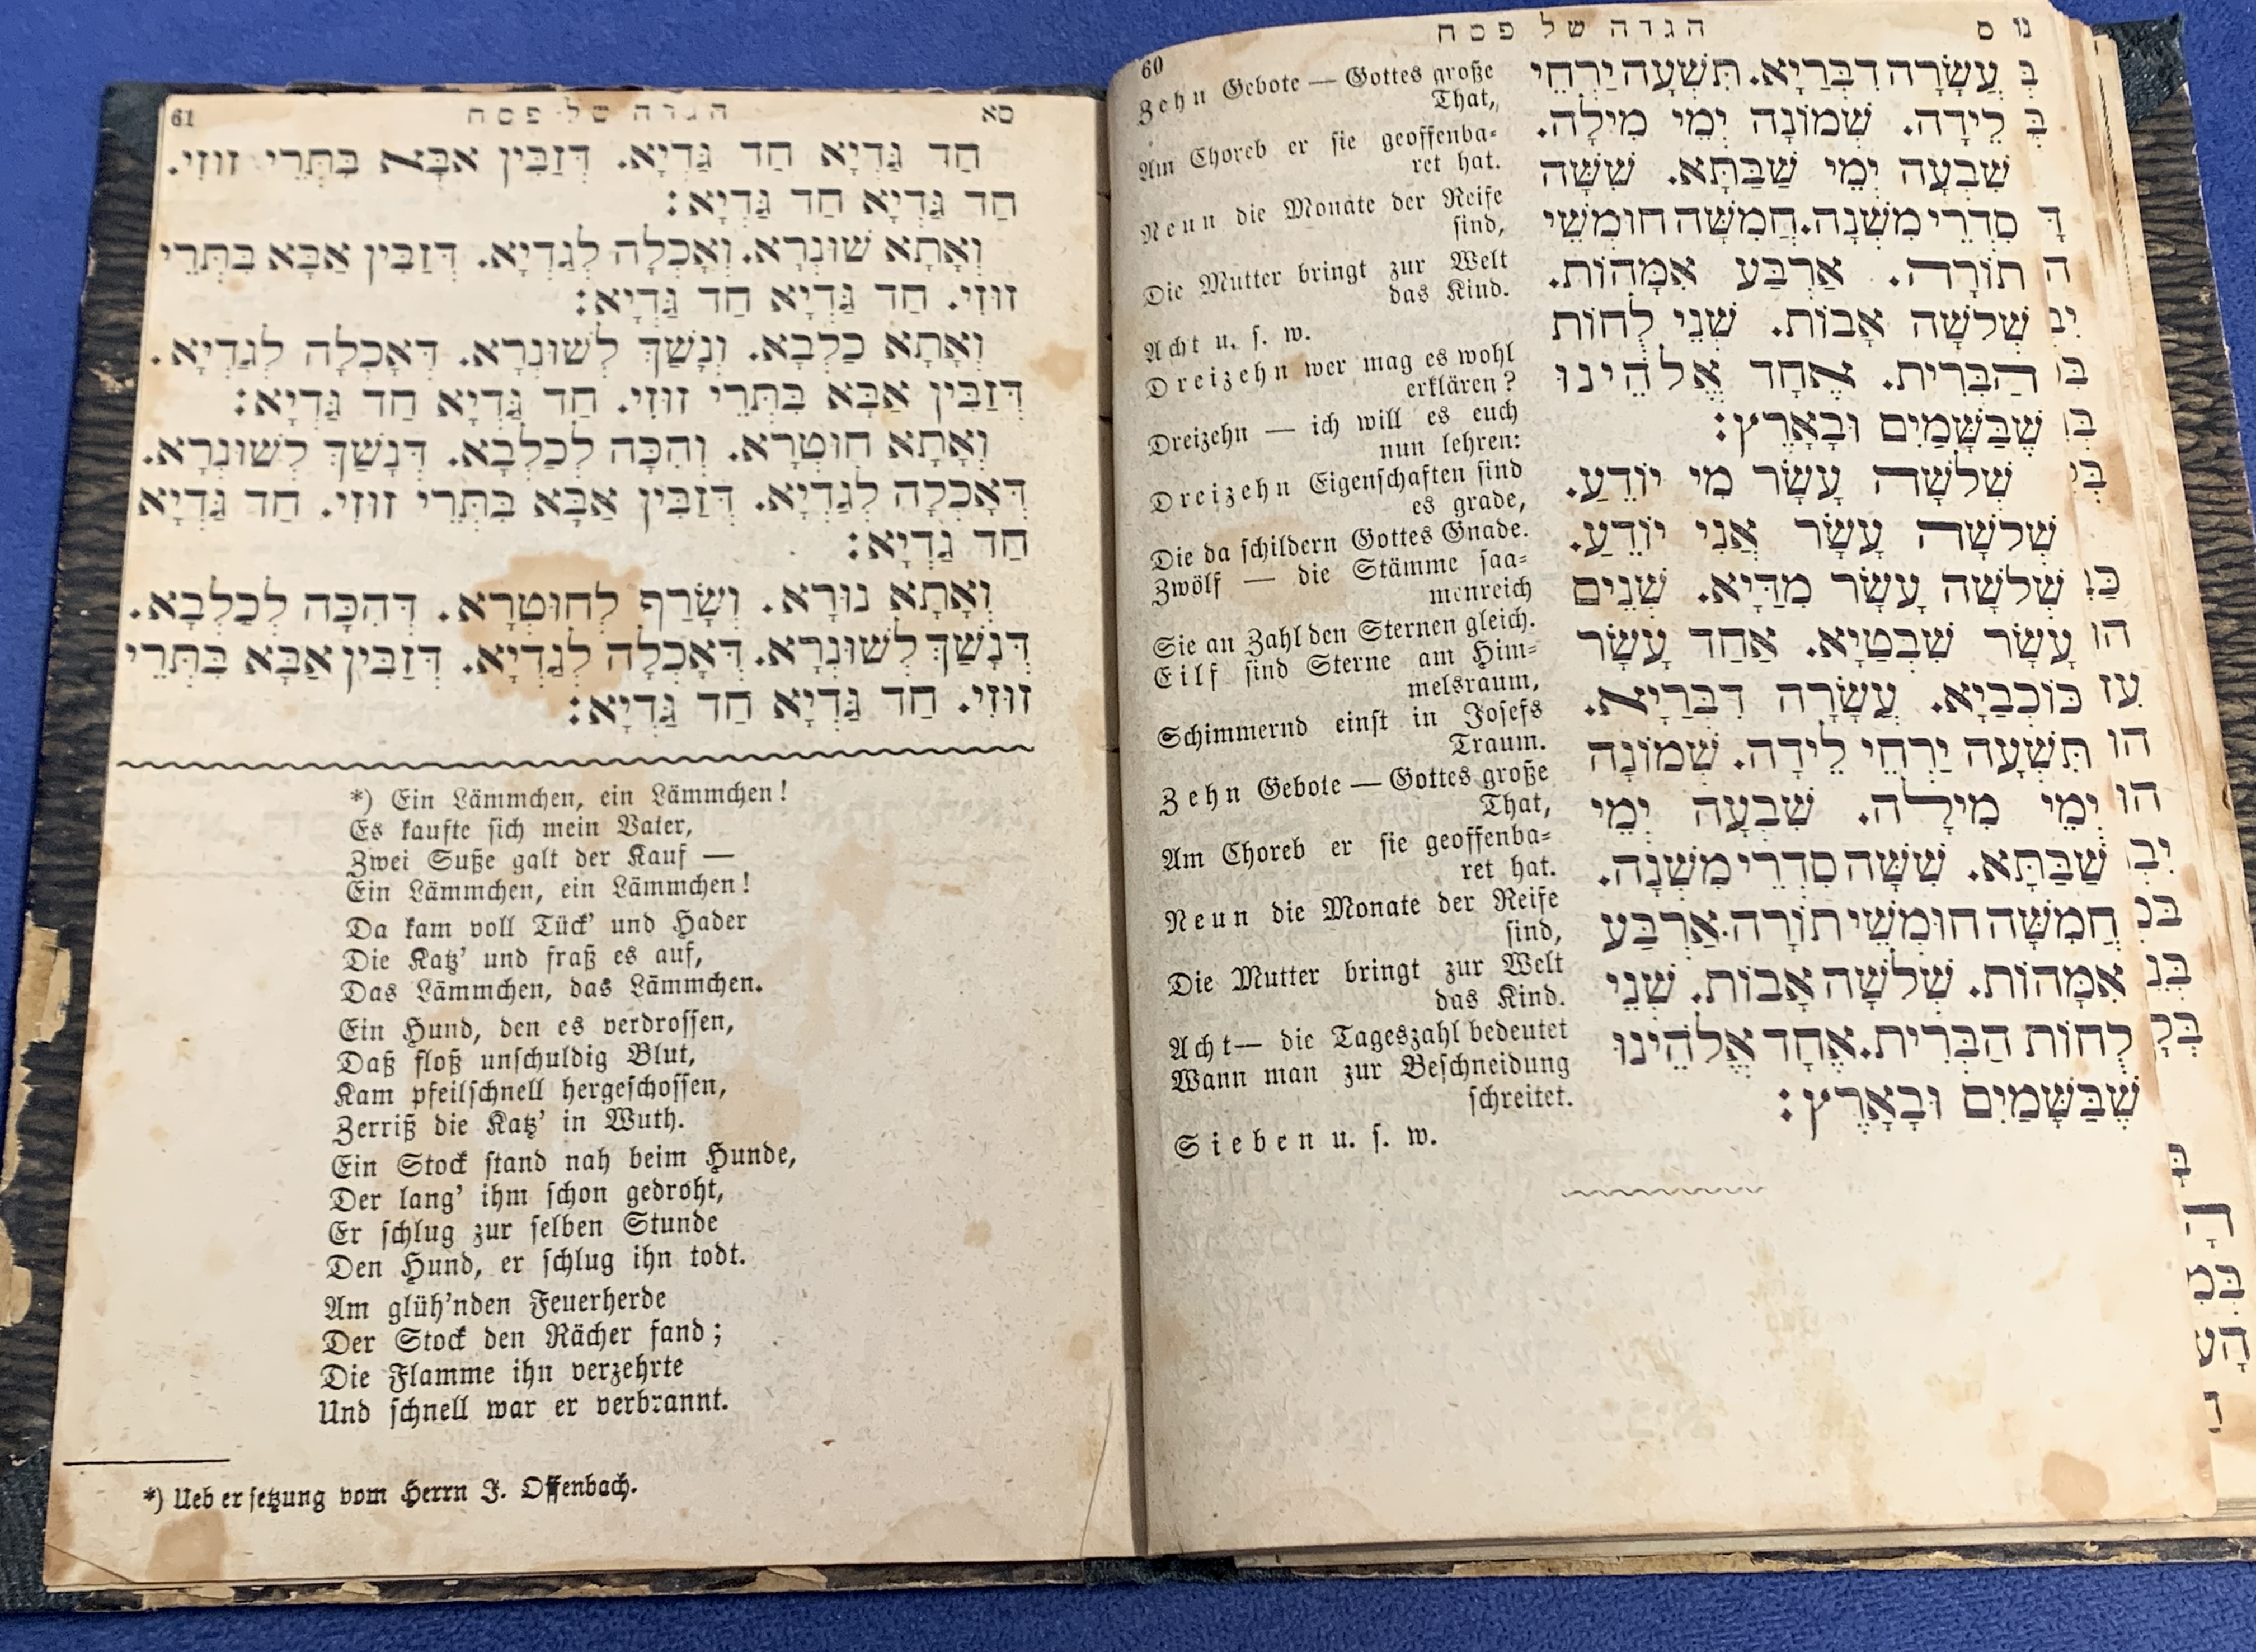 60
הגדה של פסח
ס
עֲשָׂרָה דִבְּרַיָא. תִּשְׁעָה יַרְחֵי
לֵידָה. שְׁמוֹנָה יְמֵי מִילָה.
שִׁבְעָה יְמֵי שַׁבַּתָּא. שִׁשָּׁה
סִדְרֵי מִשְׁנָה. חֲמִשָּׁה חוּמְשֵׁי
תוֹרָה. אַרְבַּע אִמָּהוֹת.
שְׁלשָׁה אָבוֹת. שְׁנֵי לֻחוֹת
הַבְּרִית. אֶחָד אֱלֹהֵינוּ
שֶׁבַּשָּׁמַיִם וּבָאָרֶץ:
שְׁלשָׁה עָשָׂר מִי יוֹדֵעַ.
שְׁלשָׁה עָשָׂר אֲנִי יוֹדֵעַ.
שְׁלשָׁה עָשָׂר מִדַּיָא. שְׁנֵים
עָשָׂר שִׁבְטַיָא. אַחַד עָשָׂר
כּוֹכְבַיָא. עֲשָׂרָה דִבְּרַיָא.
תִּשְׁעָה יַרְחֵי לֵידָה. שְׁמוֹנָה
יְמֵי מִילָה. שִׁבְעָה יְמֵי
שַׁבַּתָּא. שִׁשָּׁה סִדְרֵי מִשְׁנָה.
חֲמִשָּׁה חוּמְשֵׁי תוֹרָה. אַרְבַּע
אִמָּהוֹת. שְׁלשָׁה אָבוֹת. שְׁנֵי
לֻחוֹת הַבְּרִית. אֶחָד אֱלֹהֵינוּ
שֶׁבַּשָּׁמַיִם וּבָאָרֶץ:
Zehn Gebote — Gottes große
That,
Am Choreb er sie geoffenba-
ret hat.
Neun die Monate der Reife
sind,
Die Mutter bringt zur Welt
das Kind.
Acht u. s. w.
Dreizehn wer mag es wohl
erklären?
Dreizehn — ich will es euch
nun lehren:
Dreizehn Eigenschaften sind
es grade,
Die da schildern Gottes Gnade.
Zwölf — die Stämme saa-
menreich
Sie an Zahl den Sternen gleich.
Eilf sind Sterne am Him-
melsraum,
Schimmernd einst in Josefs
Traum.
Zehn Gebote — Gottes große
That,
Am Choreb er sie geoffenba-
ret hat.
Neun die Monate der Reife
sind,
Die Mutter bringt zur Welt
das Kind.
Acht — die Tageszahl bedeutet
Wann man zur Beschneidung
schreitet.
Sieben u. s. w.
61
הגדה של פסח
סא
חַד גַּדְיָא חַד גַּדְיָא. דְּזַבִּין אַבָּא בִּתְרֵי זוּזֵי.
חַד גַּדְיָא חַד גַּדְיָא:
וְאָתָא שׁוּנְרָא. וְאָכְלָה לְגַדְיָא. דְּזַבִּין אַבָּא בִּתְרֵי
זוּזֵי. חַד גַּדְיָא חַד גַּדְיָא:
וְאָתָא כַלְבָא. וְנָשַׁךְ לְשׁוּנְרָא. דְּאָכְלָה לְגַדְיָא.
דְּזַבִּין אַבָּא בִּתְרֵי זוּזֵי. חַד גַּדְיָא חַד גַּדְיָא:
וְאָתָא חוּטְרָא. וְהִכָּה לְכַלְבָא. דְּנָשַׁךְ לְשׁוּנְרָא.
דְּאָכְלָה לְגַדְיָא. דְּזַבִּין אַבָּא בִּתְרֵי זוּזֵי. חַד גַּדְיָא
חַד גַּדְיָא:
וְאָתָא נוּרָא. וְשָׂרַף לְחוּטְרָא. דְּהִכָּה לְכַלְבָא.
דְּנָשַׁךְ לְשׁוּנְרָא. דְּאָכְלָה לְגַדְיָא. דְּזַבִּין אַבָּא בִּתְרֵי
זוּזֵי. חַד גַּדְיָא חַד גַּדְיָא:
*) Ein Lämmchen, ein Lämmchen!
Es kaufte sich mein Vater,
Zwei Suße galt der Kauf —
Ein Lämmchen, ein Lämmchen!
Da kam voll Tück' und Hader
Die Katz' und fraß es auf,
Das Lämmchen, das Lämmchen.
Ein Hund, den es verdrossen,
Daß floß unschuldig Blut,
Kam pfeilschnell hergeschossen,
Zerriß die Katz' in Wuth.
Ein Stock stand nah beim Hunde,
Der lang' ihm schon gedroht,
Er schlug zur selben Stunde
Den Hund, er schlug ihn todt.
Am glüh'nden Feuerherde
Der Stock den Rächer fand;
Die Flamme ihn verzehrte
Und schnell war er verbrannt.
*) Uebersetzung vom Herrn J. Offenbach.